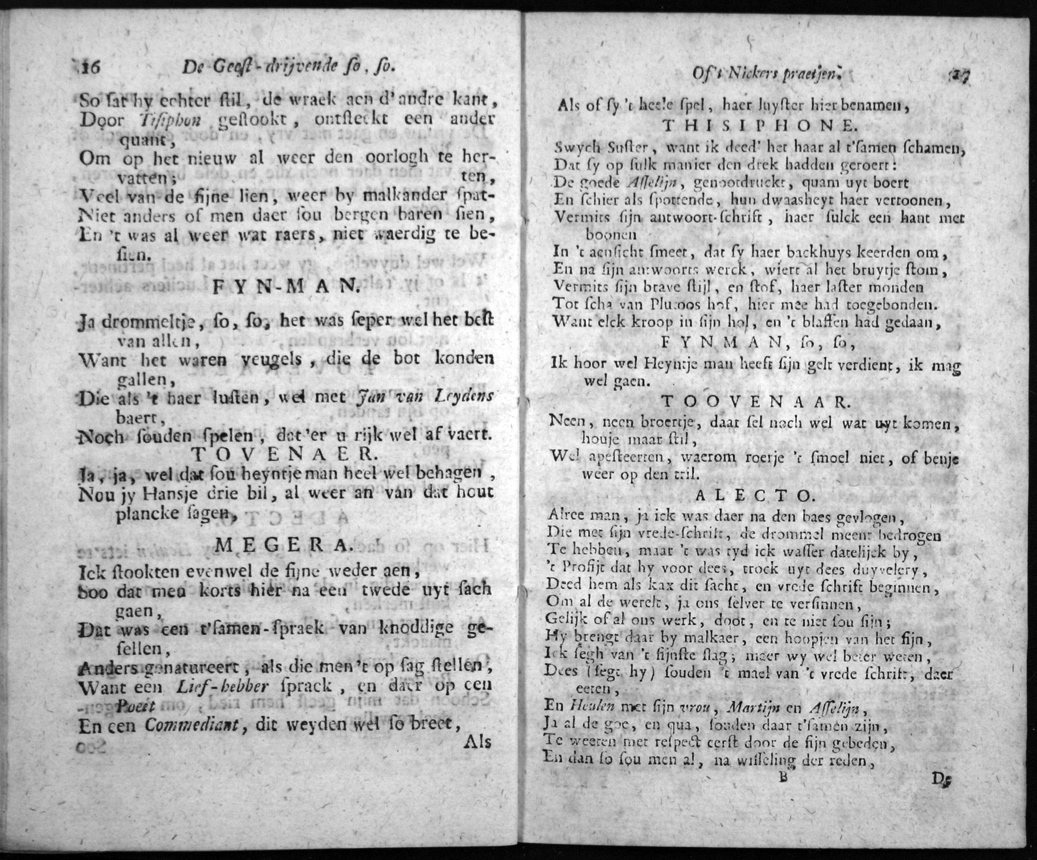 16 De Geest-drijvende so, so.
So sat hy echter stil, de wraek aen d'andre kant,
Door Tisiphon gestookt, ontsteckt een ander
quant,
Om op het nieuw al weer den oorlogh te her-
vatten; ten,
Veel van de fijne lien, weer by malkander spat-
Niet anders of men daer sou bergen baren sien,
En 't was al weer wat raers, niet waerdig te be-
sien.
FYN-MAN.
Ja drommeltje, so, so, het was seper wel het best
van allen,
Want het waren yeugels, die de bot konden
gallen,
Die als 't haer lusten, wel met Jan van Leydens
baert,
Noch souden spelen, dat'er u rijk wel af vaert.
TOVENAER.
Ja, ja, wel dat sou heyntje man heel wel behagen,
Nou jy Hansje drie bil, al weer an van dat hout
plancke sagen,
MEGERA.
Ick stookten evenwel de fijne weder aen,
Soo dat men korts hier na een twede uyt sach
gaen,
Dat was een t'samen-spraek van knoddige ge-
sellen,
Anders genatureert, als die men 't op sag stellen,
Want een Lief-hebber sprack, en daer op een
Poëet
En een Commediant, dit weyden wel so breet,
Als
Of 't Nickers praetjen. 17
Als of sy 't heele spel, haer luyster hier benamen,
THISIPHONE.
Swych Suster, want ik deed' het haar al t'samen schamen,
Dat sy op sulk manier den drek hadden geroert:
De goede Asselijn, genootdruckt, quam uyt boert
En schier als spottende, hun dwaasheyt haer vertoonen,
Vermits sijn antwoort-schrift, haer sulck een hant met
boonen
In 't aensicht smeet, dat sy haer backhuys keerden om,
En na sijn antwoorts werck, wiert al het bruytje stom,
Vermits sijn brave stijl, en stof, haer laster monden
Tot scha van Plutoos hof, hier mee had toegebonden.
Want elck kroop in sijn hol, en 't blaffen had gedaan,
FYNMAN, so, so,
Ik hoor wel Heyntje man heeft sijn gelt verdient, ik mag
wel gaen.
TOOVENAAR.
Neen, neen broertje, daar sel noch wel wat uyt komen,
houje maar stil,
Wel apesteerten, waerom roerje 't smoel niet, of benje
weer op den tril.
ALECTO.
Alree man, ja ick was daer na den baes gevlogen,
Die met sijn vrede-schrift, de drommel meent bedrogen
Te hebben, maar 't was tyd ick wasser datelijck by,
't Profijt dat hy voor dees, trock uyt dees duyvelery,
Deed hem als kax dit sacht, en vrede schrift beginnen,
Om al de werelt, ja ons selver te versinnen,
Gelijk of al ons werk, doot, en te niet sou sijn;
Hy brengt daar by malkaer, een hoopjen van het fijn,
Ick segh van 't fijnste slag; maer wy wel beter weten,
Dees (segt hy) souden 't mael van 't vrede schrift, daer
eeten,
En Heulen met sijn vrou, Martijn en Asselijn,
Ja al de goe, en qua, souden daar t'samen zijn,
Te weeren met respect eerst door de fijn gebeden,
En dan so sou men al, na wisseling der reden,
B De